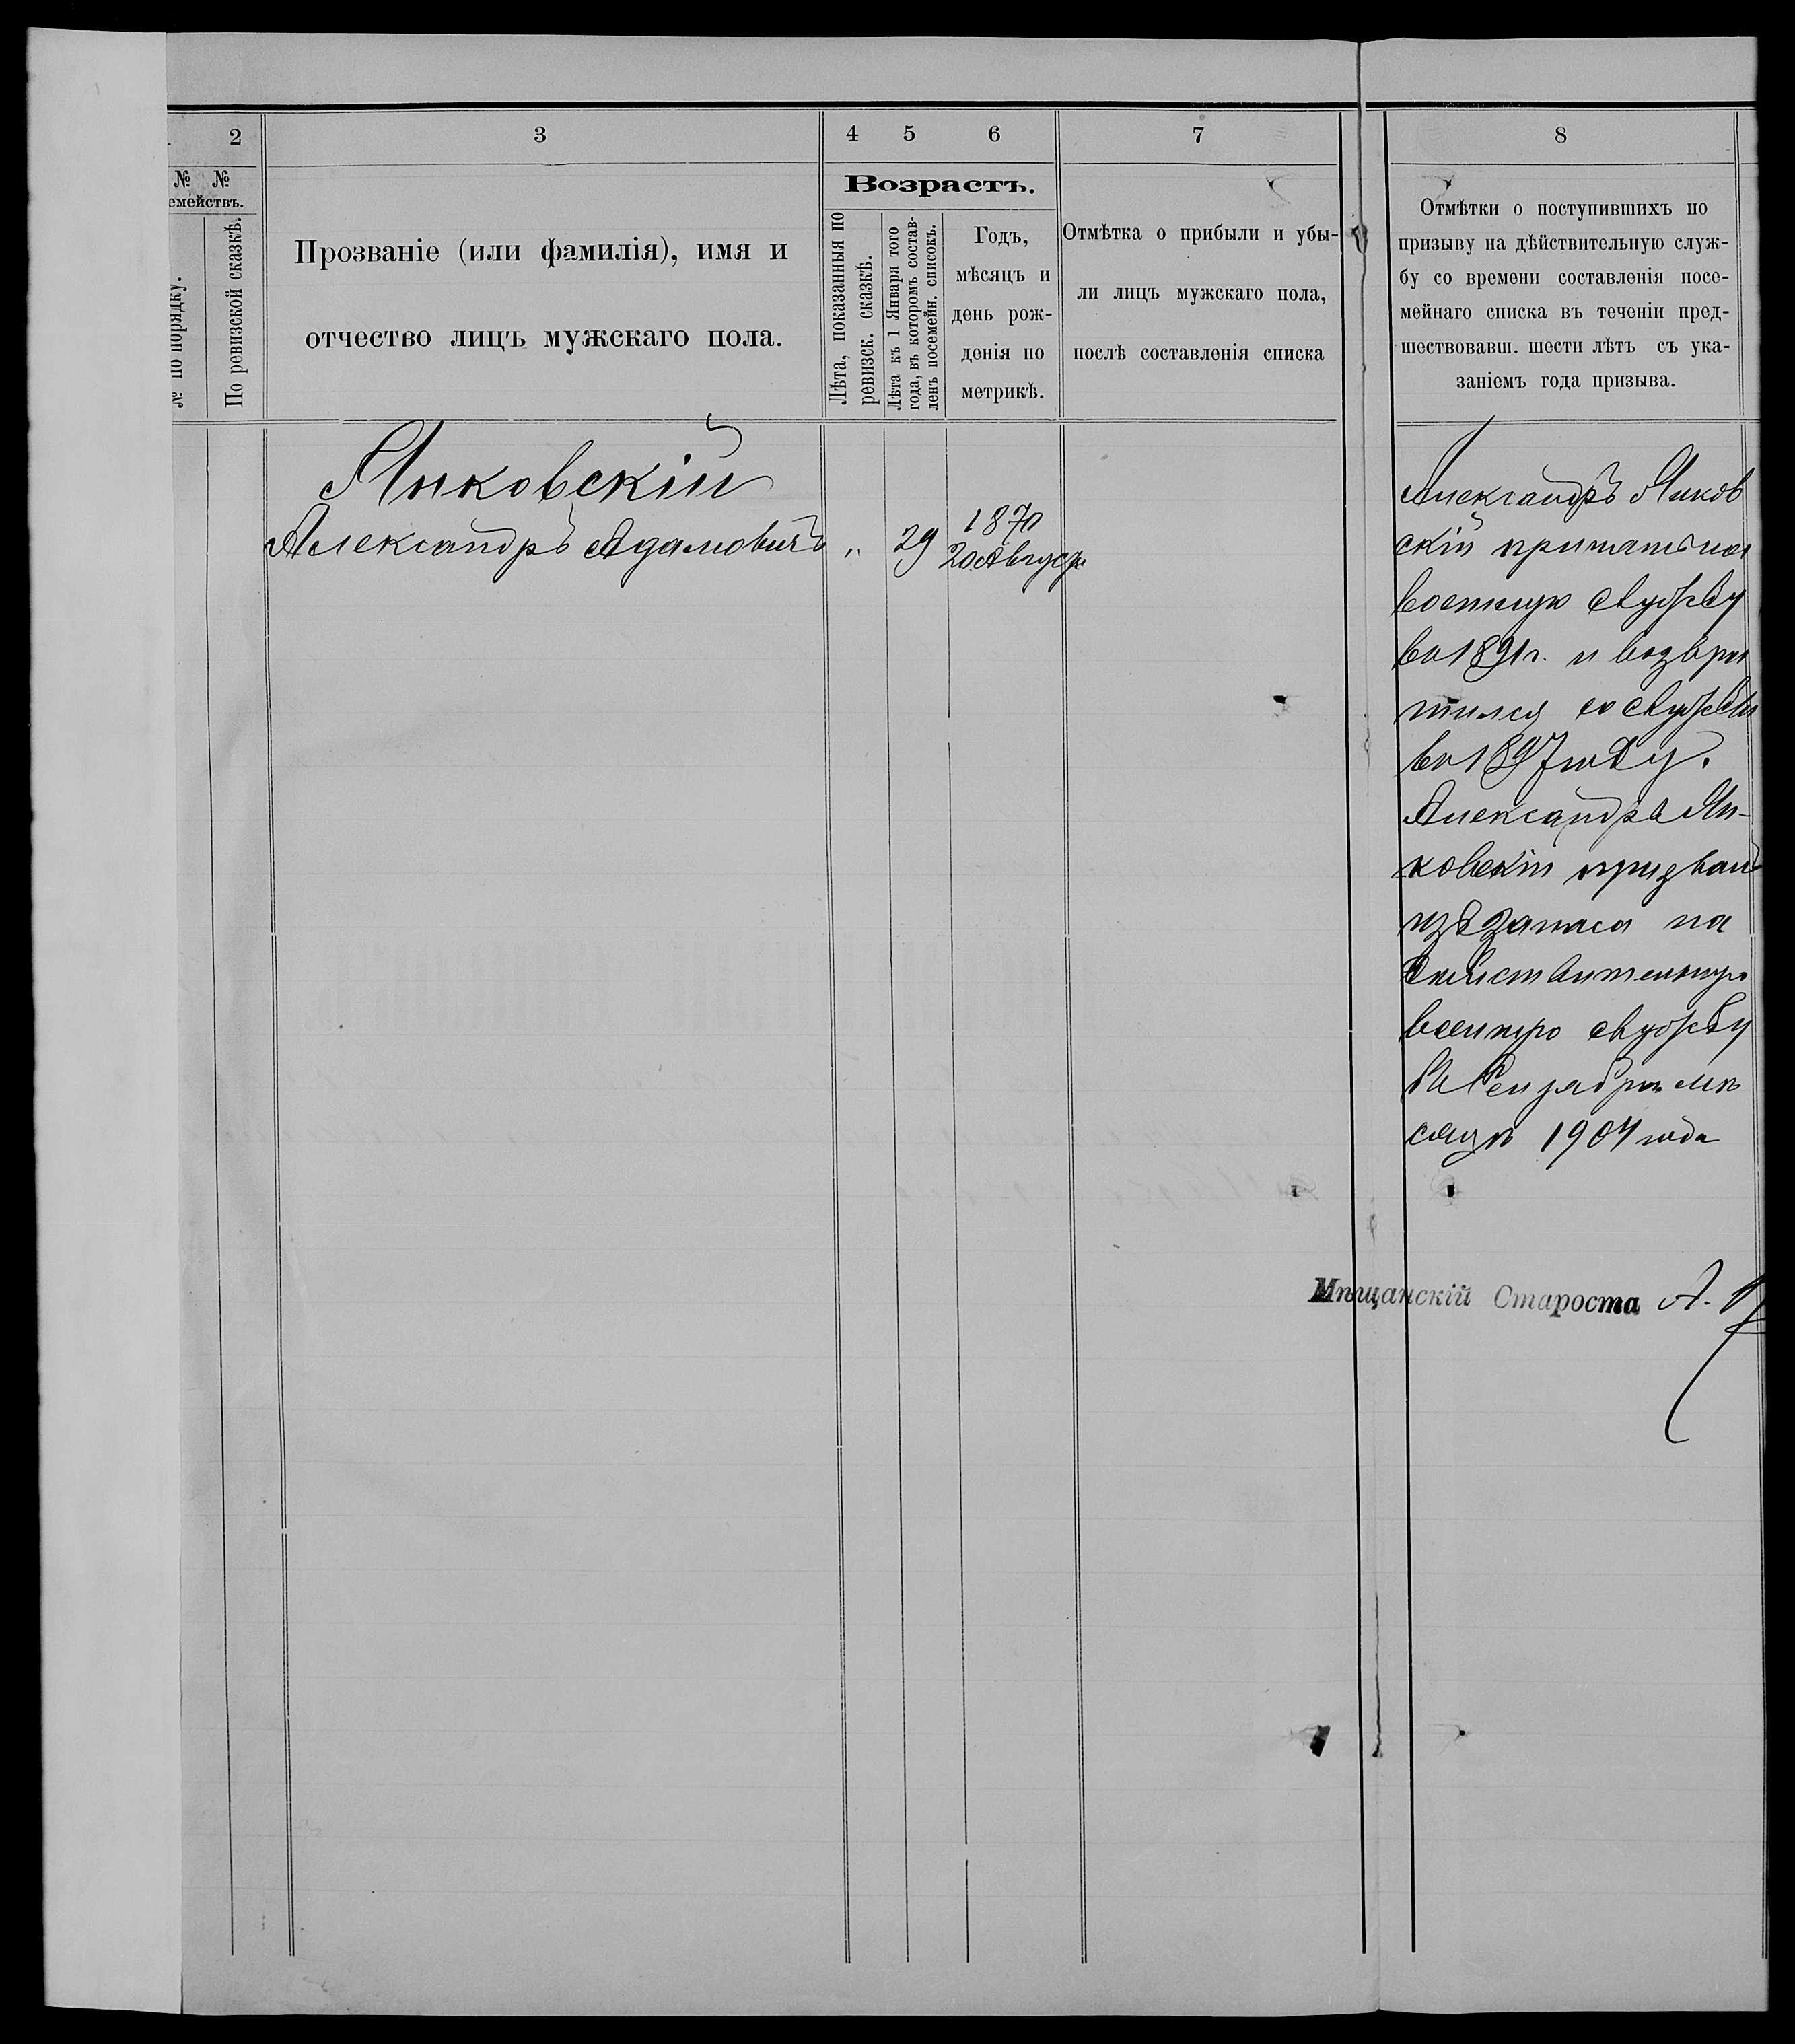 2 3 4 5 6 7 8
№ №
емействъ.
№ по порядку.
По ревизской сказкѣ.
Прозваніе (или фамилія), имя и
отчество лицъ мужскаго пола.
Возрастъ.
Лѣта, показанныя по
ревизск. сказкѣ.
Лѣта къ 1 Января того
года, въ которомъ состав-
ленъ посемейн. списокъ.
Годъ,
мѣсяцъ и
день рож-
денія по
метрикѣ.
Отмѣтка о прибыли и убы-
ли лицъ мужскаго пола,
послѣ составленія списка
Отмѣтки о поступившихъ по
призыву на дѣйствительную служ-
бу со времени составленія посе-
мейнаго списка въ теченіи пред-
шествовавш. шести лѣтъ съ ука-
заніемъ года призыва.
Янковскій
Александръ Адамовичъ
„
29
1870
20 Август.
Александръ Янков
скій принятъ на
военную службу
въ 1891 г. и возвра
тился со службы
въ 1897 году.
Александръ Ян-
ковскій призванъ
изъ запаса на
дѣйствительную
военную службу
въ Сентябрѣ мѣ
сяцѣ 1904 года
Мѣщанскій Староста А.